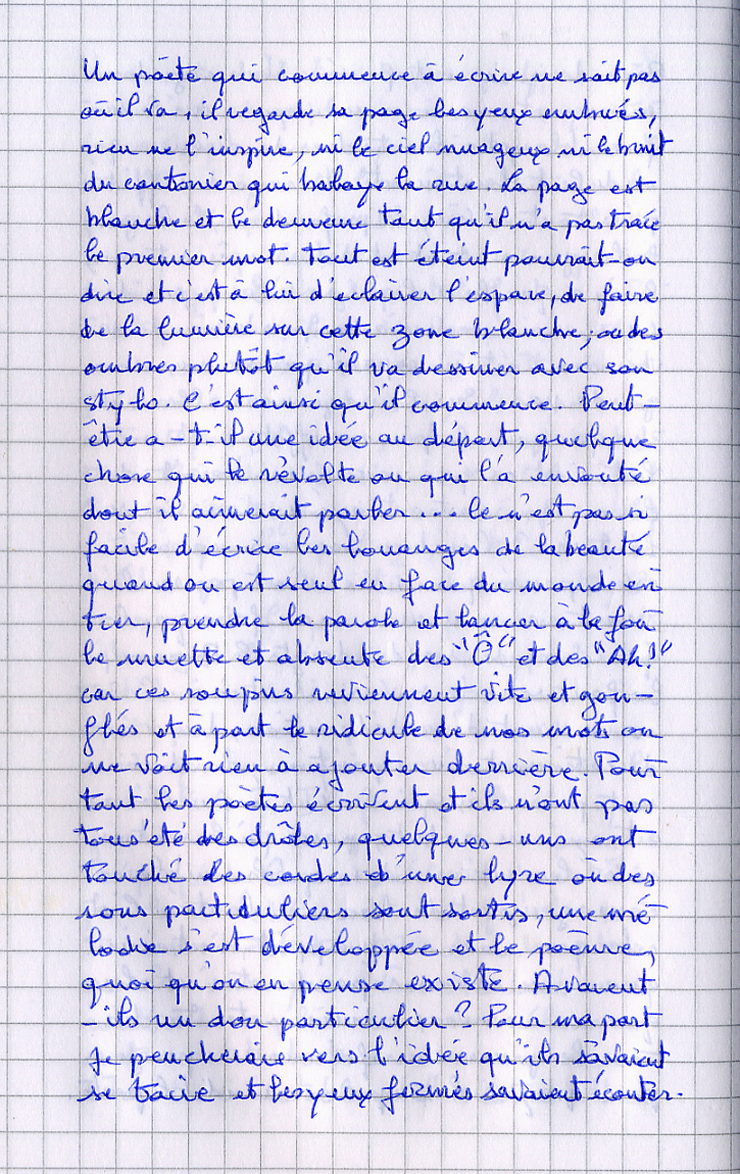 Un poète qui commence à écrire ne sait pas
où il va, il regarde sa page les yeux embués,
rien ne l'inspire, ni le ciel nuageux ni le bruit
du cantonier qui balaye la rue. La page est
blanche et le demeure tant qu'il n'a pas tracé
le premier mot. Tout est éteint pourrait-on
dire et c'est à lui d'eclairer l'espace, de faire
de la lumière sur cette zone blanche, ou des
ombres plutôt qu'il va dessiner avec son
stylo. C'est ainsi qu'il commence. Peut-
être a-t-il une idée au départ, quelque
chose qui le révolte ou qui l'a envouté
dont il aimerait parler... Ce n'est pas si
facile d'écrire les louanges de la beauté
quand on est seul en face du monde en
tier, prendre la parole et lancer à la fou
le muette et absente des "Ô" et des "Ah!"
car ces soupirs reviennent vite et gon-
flés et à part le ridicule de nos mots on
ne voit rien à ajouter derrière. Pour
tant les poètes écrivent et ils n'ont pas
tous été des drôles, quelques-uns ont
touché des cordes d'une lyre où des
sons particuliers sont sortis, une mé
lodie s'est développée et le poème,
quoi qu'on en pense existe. Avaient
-ils un don particulier? Pour ma part
je pencherais vers l'idée qu'ils savaient
se taire et les yeux fermés savaient écouter.